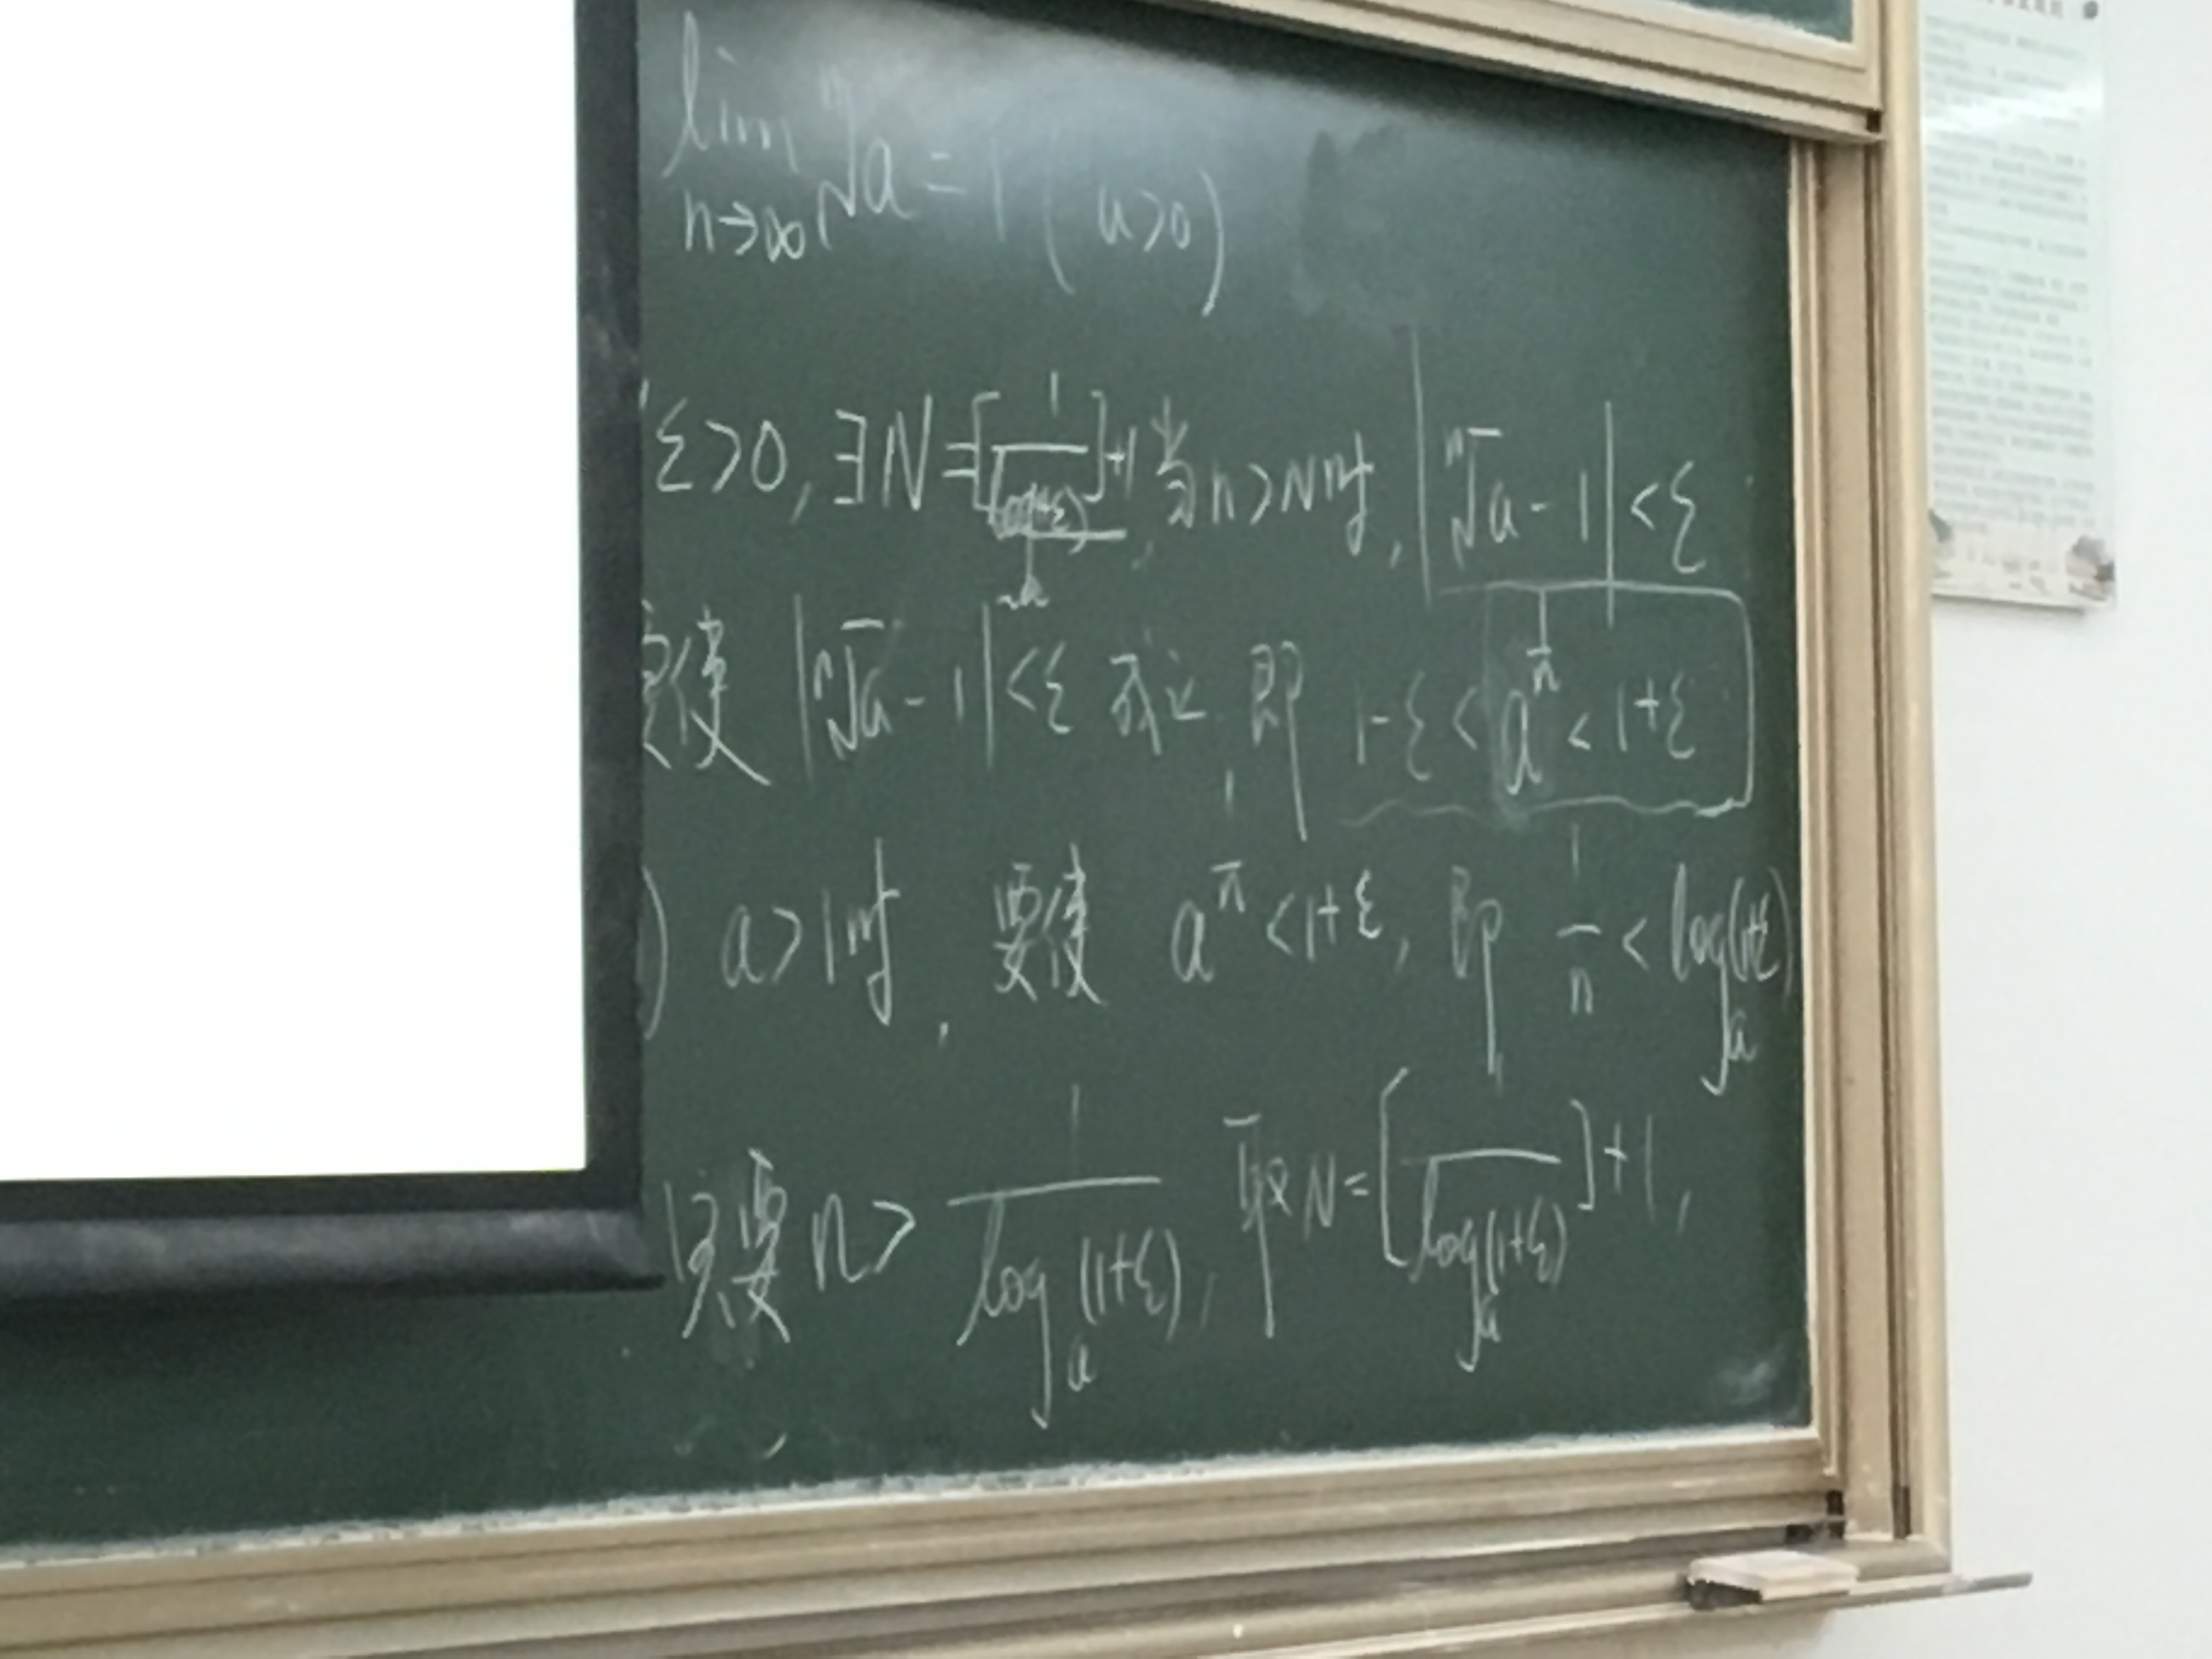 lim n→∞ ⁿ√a = 1 (a>0)
ε>0, ∃N=[1/log_a(1+ε)]+1, 当n>N时, |ⁿ√a-1|<ε
要使 |ⁿ√a-1|<ε 成立, 即 1-ε<a^(1/n)<1+ε
) a>1时, 要使 a^(1/n)<1+ε, 即 1/n<log_a(1+ε)
只要 n>1/log_a(1+ε), 取N=[1/log_a(1+ε)]+1,